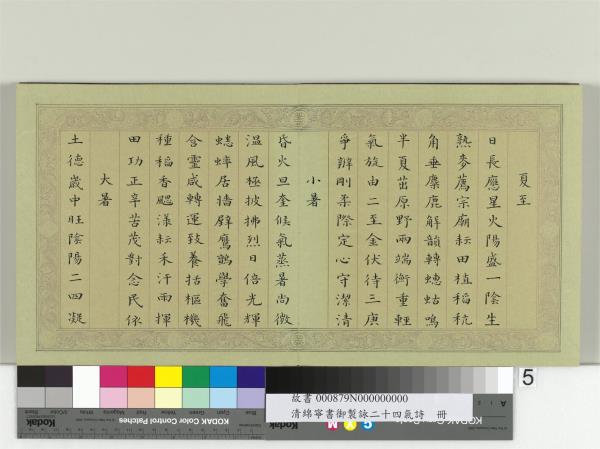 夏至
日長應星火陽盛一陰生
熟麥薦宗廟耘田植稻秔
角垂麋鹿解韻轉蟪蛄鳴
半夏茁原野兩端衡重輕
氣旋由二至金伏待三庚
爭辨剛柔際定心守潔清
小暑
昏火旦奎候氣蒸暑尚微
溫風極披拂烈日倍光輝
蟋蟀居牆壁鷹鸇學奮飛
含靈咸轉運致養括樞機
種稻香颸漾耘禾汗雨揮
田功正辛苦茂對念民依
大暑
土德歲中旺陰陽二四凝
5
故書 000879N000000000
清綿寧書御製詠二十四氣詩 冊
KODAK Color Control Patches
Blue
Cyan
Green
Yellow
Red
Magenta
White
3/Color
Black
A
C Y M